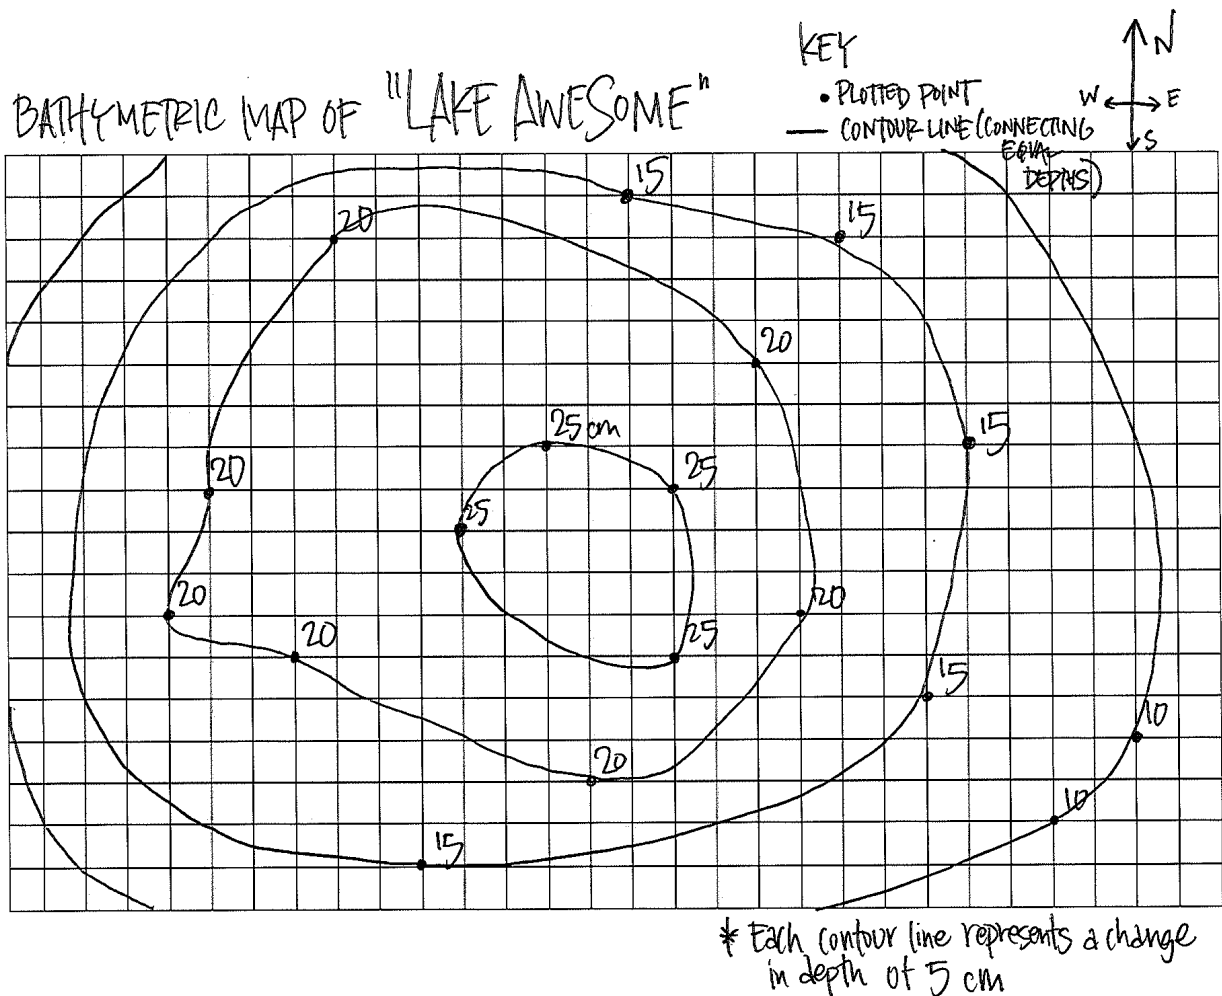 KEY
N
BATHYMETRIC MAP OF "LAKE AWESOME"
• PLOTTED POINT
W E
— CONTOUR LINE (CONNECTING
EQUAL
DEPTHS)
S
15
20
15
20
25 cm
15
25
20
25
20
20
20
25
15
10
20
10
15
* Each contour line represents a change
in depth of 5 cm